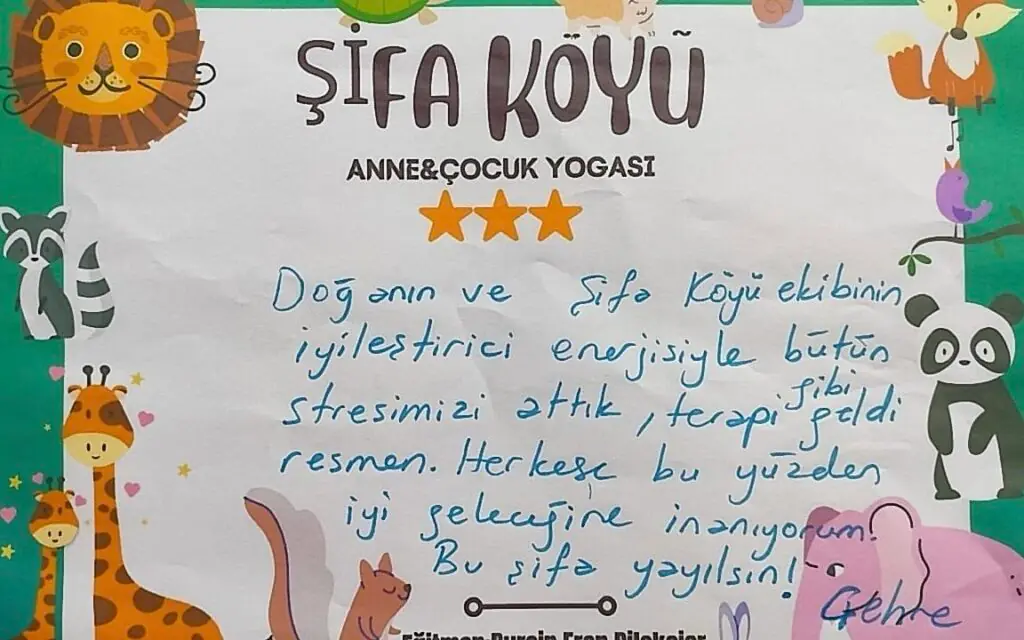 ŞİFA KÖYÜ
ANNE&ÇOCUK YOGASI
Doğanın ve Şifa Köyü ekibinin
iyileştirici enerjisiyle bütün
stresimizi attık, terapi gibi geldi
resmen. Herkese bu yüzden
iyi geleceğine inanıyorum!
Bu şifa yayılsın!